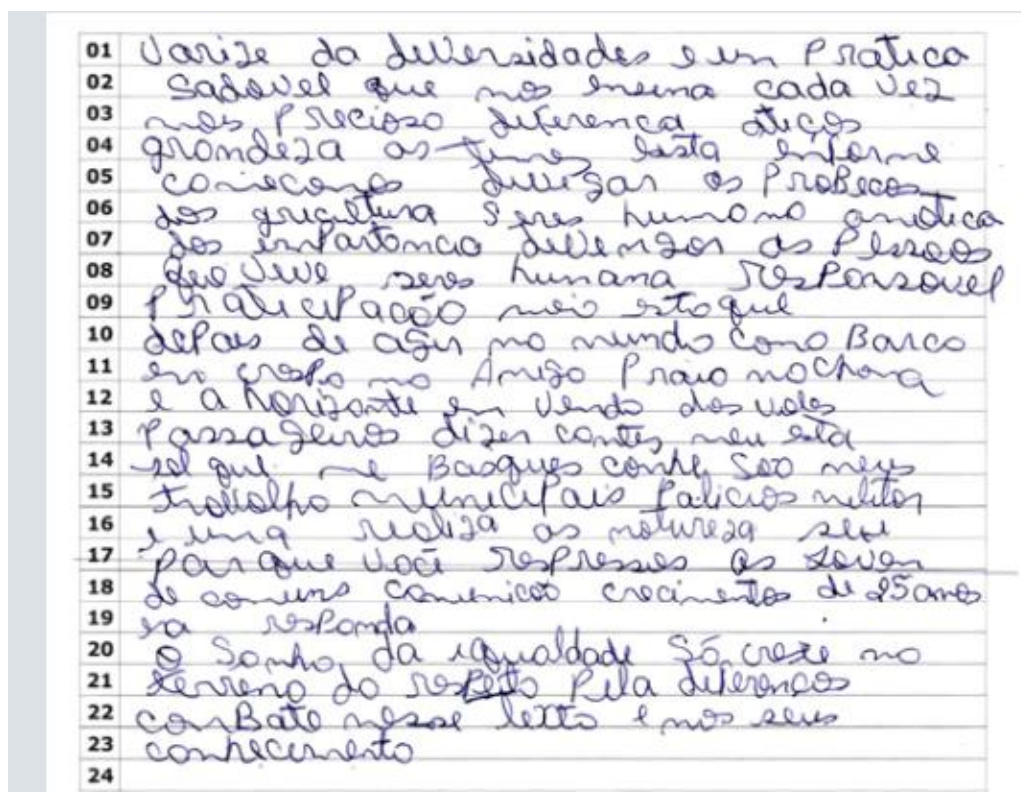 01 Varize da diversidades e um Pratica
02 Sadavel que nos ensina cada vez
03 mas Precioso diferenca
04 grandeza as esta enforme
05 divigar os
06 dos gricultura seres humano
07 dos inpartancia as Pessoas
08 que vive seres humana responsavel
09 praticipação meio estoque
10 depais de agir no mundo como Barco
11 em no Amigo Praio
12 e a horizonte em vendo dos
13 Passageiros dizer contes, meu esta
14 sol que me Basques são meus
15 trabalho municipais palicios militar
16 e uma realiza as natureza
17 Par que você respresses as Joven
18 de comuns comunicão crecimentos de 25 anos
19 responda
20 O Sonho, da igualdade Só crese no
21 terreno do respeto Pela diferencas
22 comBate nesse texto e nos seus
23 conhecimento
24